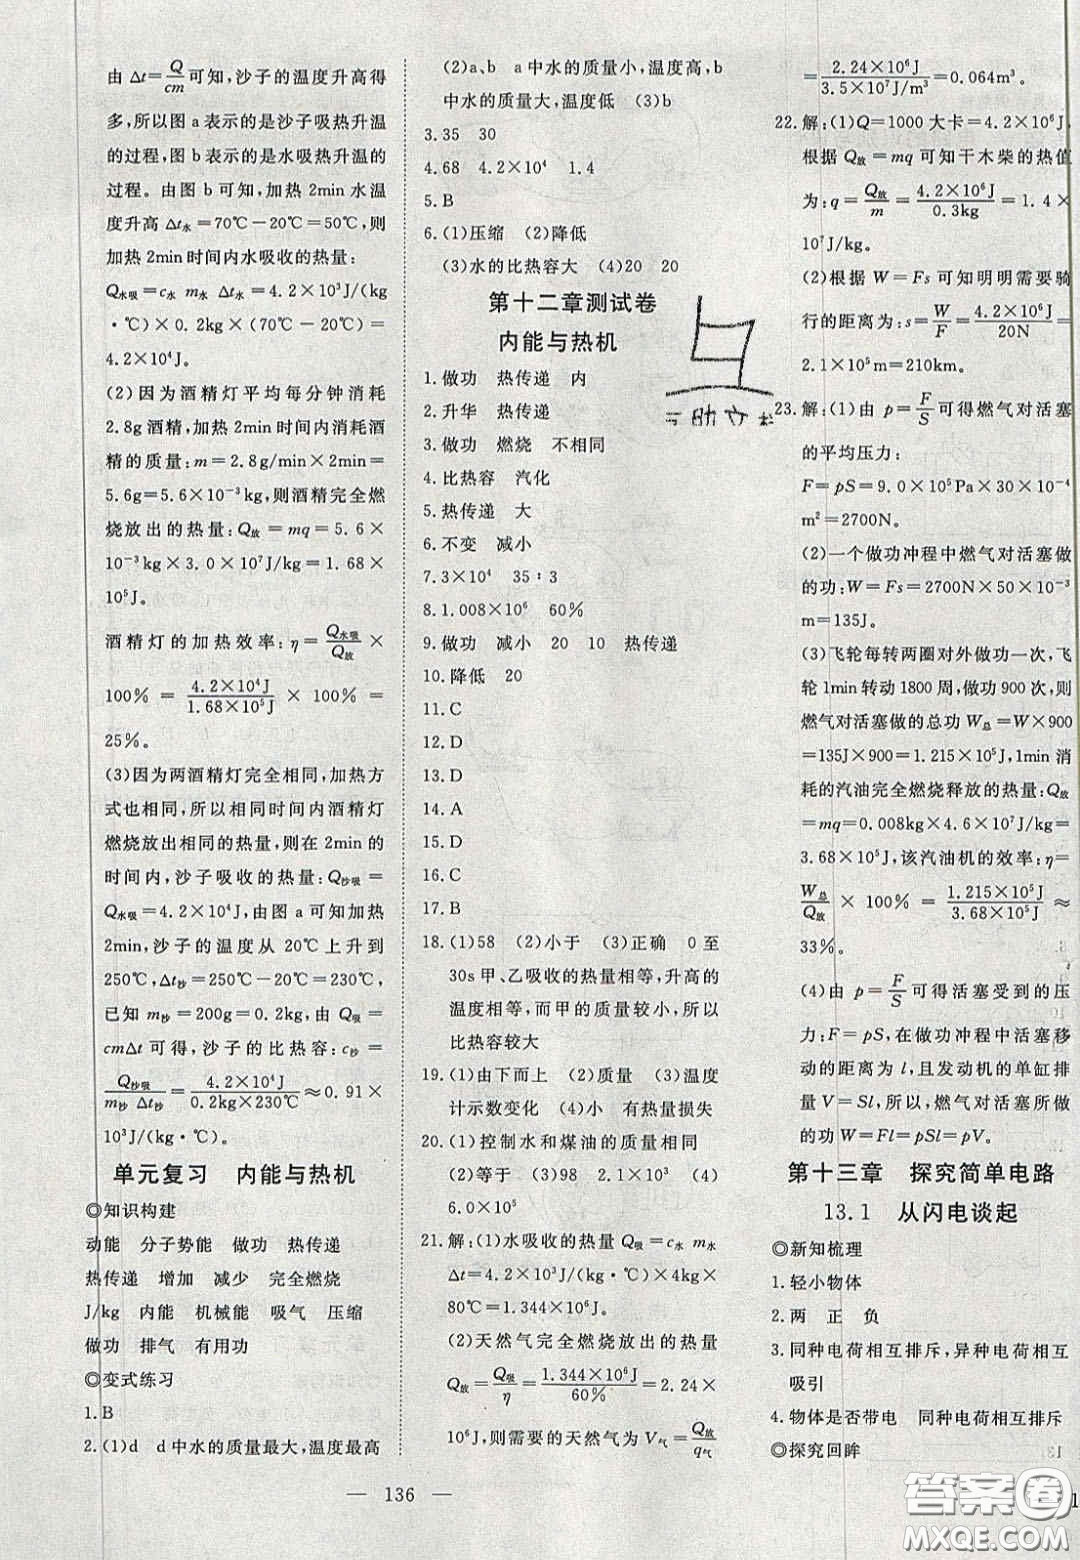 由 Δt=Q/cm 可知,沙子的温度升高得
多,所以图 a 表示的是沙子吸热升温
的过程,图 b 表示的是水吸热升温的
过程。由图 b 可知,加热 2min 水温
度升高 Δt水=70℃-20℃=50℃,则
加热 2min 时间内水吸收的热量:
Q水吸=c水 m水 Δt水=4.2×10³J/(kg
·℃)×0.2kg×(70℃-20℃)=
4.2×10⁴J。
(2)因为酒精灯平均每分钟消耗
2.8g酒精,加热 2min 时间内消耗酒
精的质量:m=2.8g/min×2min=
5.6g=5.6×10⁻³kg,则酒精完全燃
烧放出的热量:Q放=mq=5.6×
10⁻³kg×3.0×10⁷J/kg=1.68×
10⁵J。
酒精灯的加热效率:η=Q水吸/Q放×
100%=4.2×10⁴J/1.68×10⁵J×100%=
25%。
(3)因为两酒精灯完全相同,加热方
式也相同,所以相同时间内酒精灯
燃烧放出相同的热量,则在 2min 的
时间内,沙子吸收的热量:Q沙吸=
Q水吸=4.2×10⁴J,由图 a 可知加热
2min,沙子的温度从 20℃上升到
250℃,Δt沙=250℃-20℃=230℃,
已知 m沙=200g=0.2kg,由 Q吸=
cmΔt 可得,沙子的比热容:c沙=
Q沙吸/m沙 Δt沙=4.2×10⁴J/0.2kg×230℃≈0.91×
10³J/(kg·℃)。
单元复习 内能与热机
◎知识构建
动能 分子势能 做功 热传递
热传递 增加 减少 完全燃烧
J/kg 内能 机械能 吸气 压缩
做功 排气 有用功
◎变式练习
1.B
2.(1)d d 中水的质量最大,温度最高
(2)a、b a 中水的质量小,温度高,b
中水的质量大,温度低 (3)b
3.35 30
4.68 4.2×10⁴ 1.4
5.B
6.(1)压缩 (2)降低
(3)水的比热容大 (4)20 20
第十二章测试卷
内能与热机
1.做功 热传递 内
2.升华 热传递
3.做功 燃烧 不相同
4.比热容 汽化
5.热传递 大
6.不变 减小
7.3×10⁴ 35∶3
8.1.008×10⁶ 60%
9.做功 减小 20 10 热传递
10.降低 20
11.C
12.D
13.D
14.A
15.D
16.C
17.B
18.(1)58 (2)小于 (3)正确 0 至
30s 甲、乙吸收的热量相等,升高的
温度相等,而甲的质量较小,所以
比热容较大
19.(1)由下而上 (2)质量 (3)温度
计示数变化 (4)小 有热量损失
20.(1)控制水和煤油的质量相同
(2)等于 (3)98 2.1×10³ (4)
6.0×10⁴
21.解:(1)水吸收的热量 Q吸=c水 m水
Δt=4.2×10³J/(kg·℃)×4kg×
80℃=1.344×10⁶J。
(2)天然气完全燃烧放出的热量
Q放=Q吸/η=1.344×10⁶J/60%=2.24×
10⁶J,则需要的天然气为 V气=Q放/q气
=2.24×10⁶J/3.5×10⁷J/m³=0.064m³。
22.解:(1)Q=1000 大卡=4.2×10⁶J,
根据 Q放=mq 可知干木柴的热值
为:q=Q放/m=4.2×10⁶J/0.3kg=1.4×
10⁷J/kg。
(2)根据 W=Fs 可知明明需要骑
行的距离为:s=W/F=4.2×10⁶J/20N=
2.1×10⁵m=210km。
23.解:(1)由 p=F/S 可得燃气对活塞
的平均压力:
F=pS=9.0×10⁵Pa×30×10⁻⁴
m²=2700N。
(2)一个做功冲程中燃气对活塞做
的功:W=Fs=2700N×50×10⁻³
m=135J。
(3)飞轮每转两圈对外做功一次,飞
轮1min 转动 1800 周,做功 900 次,则
燃气对活塞做的总功 W总=W×900
=135J×900=1.215×10⁵J,1min 消
耗的汽油完全燃烧释放的热量:Q放
=mq=0.008kg×4.6×10⁷J/kg=
3.68×10⁵J,该汽油机的效率:η=
W总/Q放×100%=1.215×10⁵J/3.68×10⁵J×100%≈
33%。
(4)由 p=F/S 可得活塞受到的压
力:F=pS,在做功冲程中活塞移
动的距离为 l,且发动机的单缸排
量 V=Sl,所以,燃气对活塞所做
的功 W=Fl=pSl=pV。
第十三章 探究简单电路
13.1 从闪电谈起
◎新知梳理
1.轻小物体
2.两 正 负
3.同种电荷相互排斥,异种电荷相互
吸引
4.物体是否带电 同种电荷相互排斥
◎探究回眸
— 136 —
答案圈
MXQE.COM